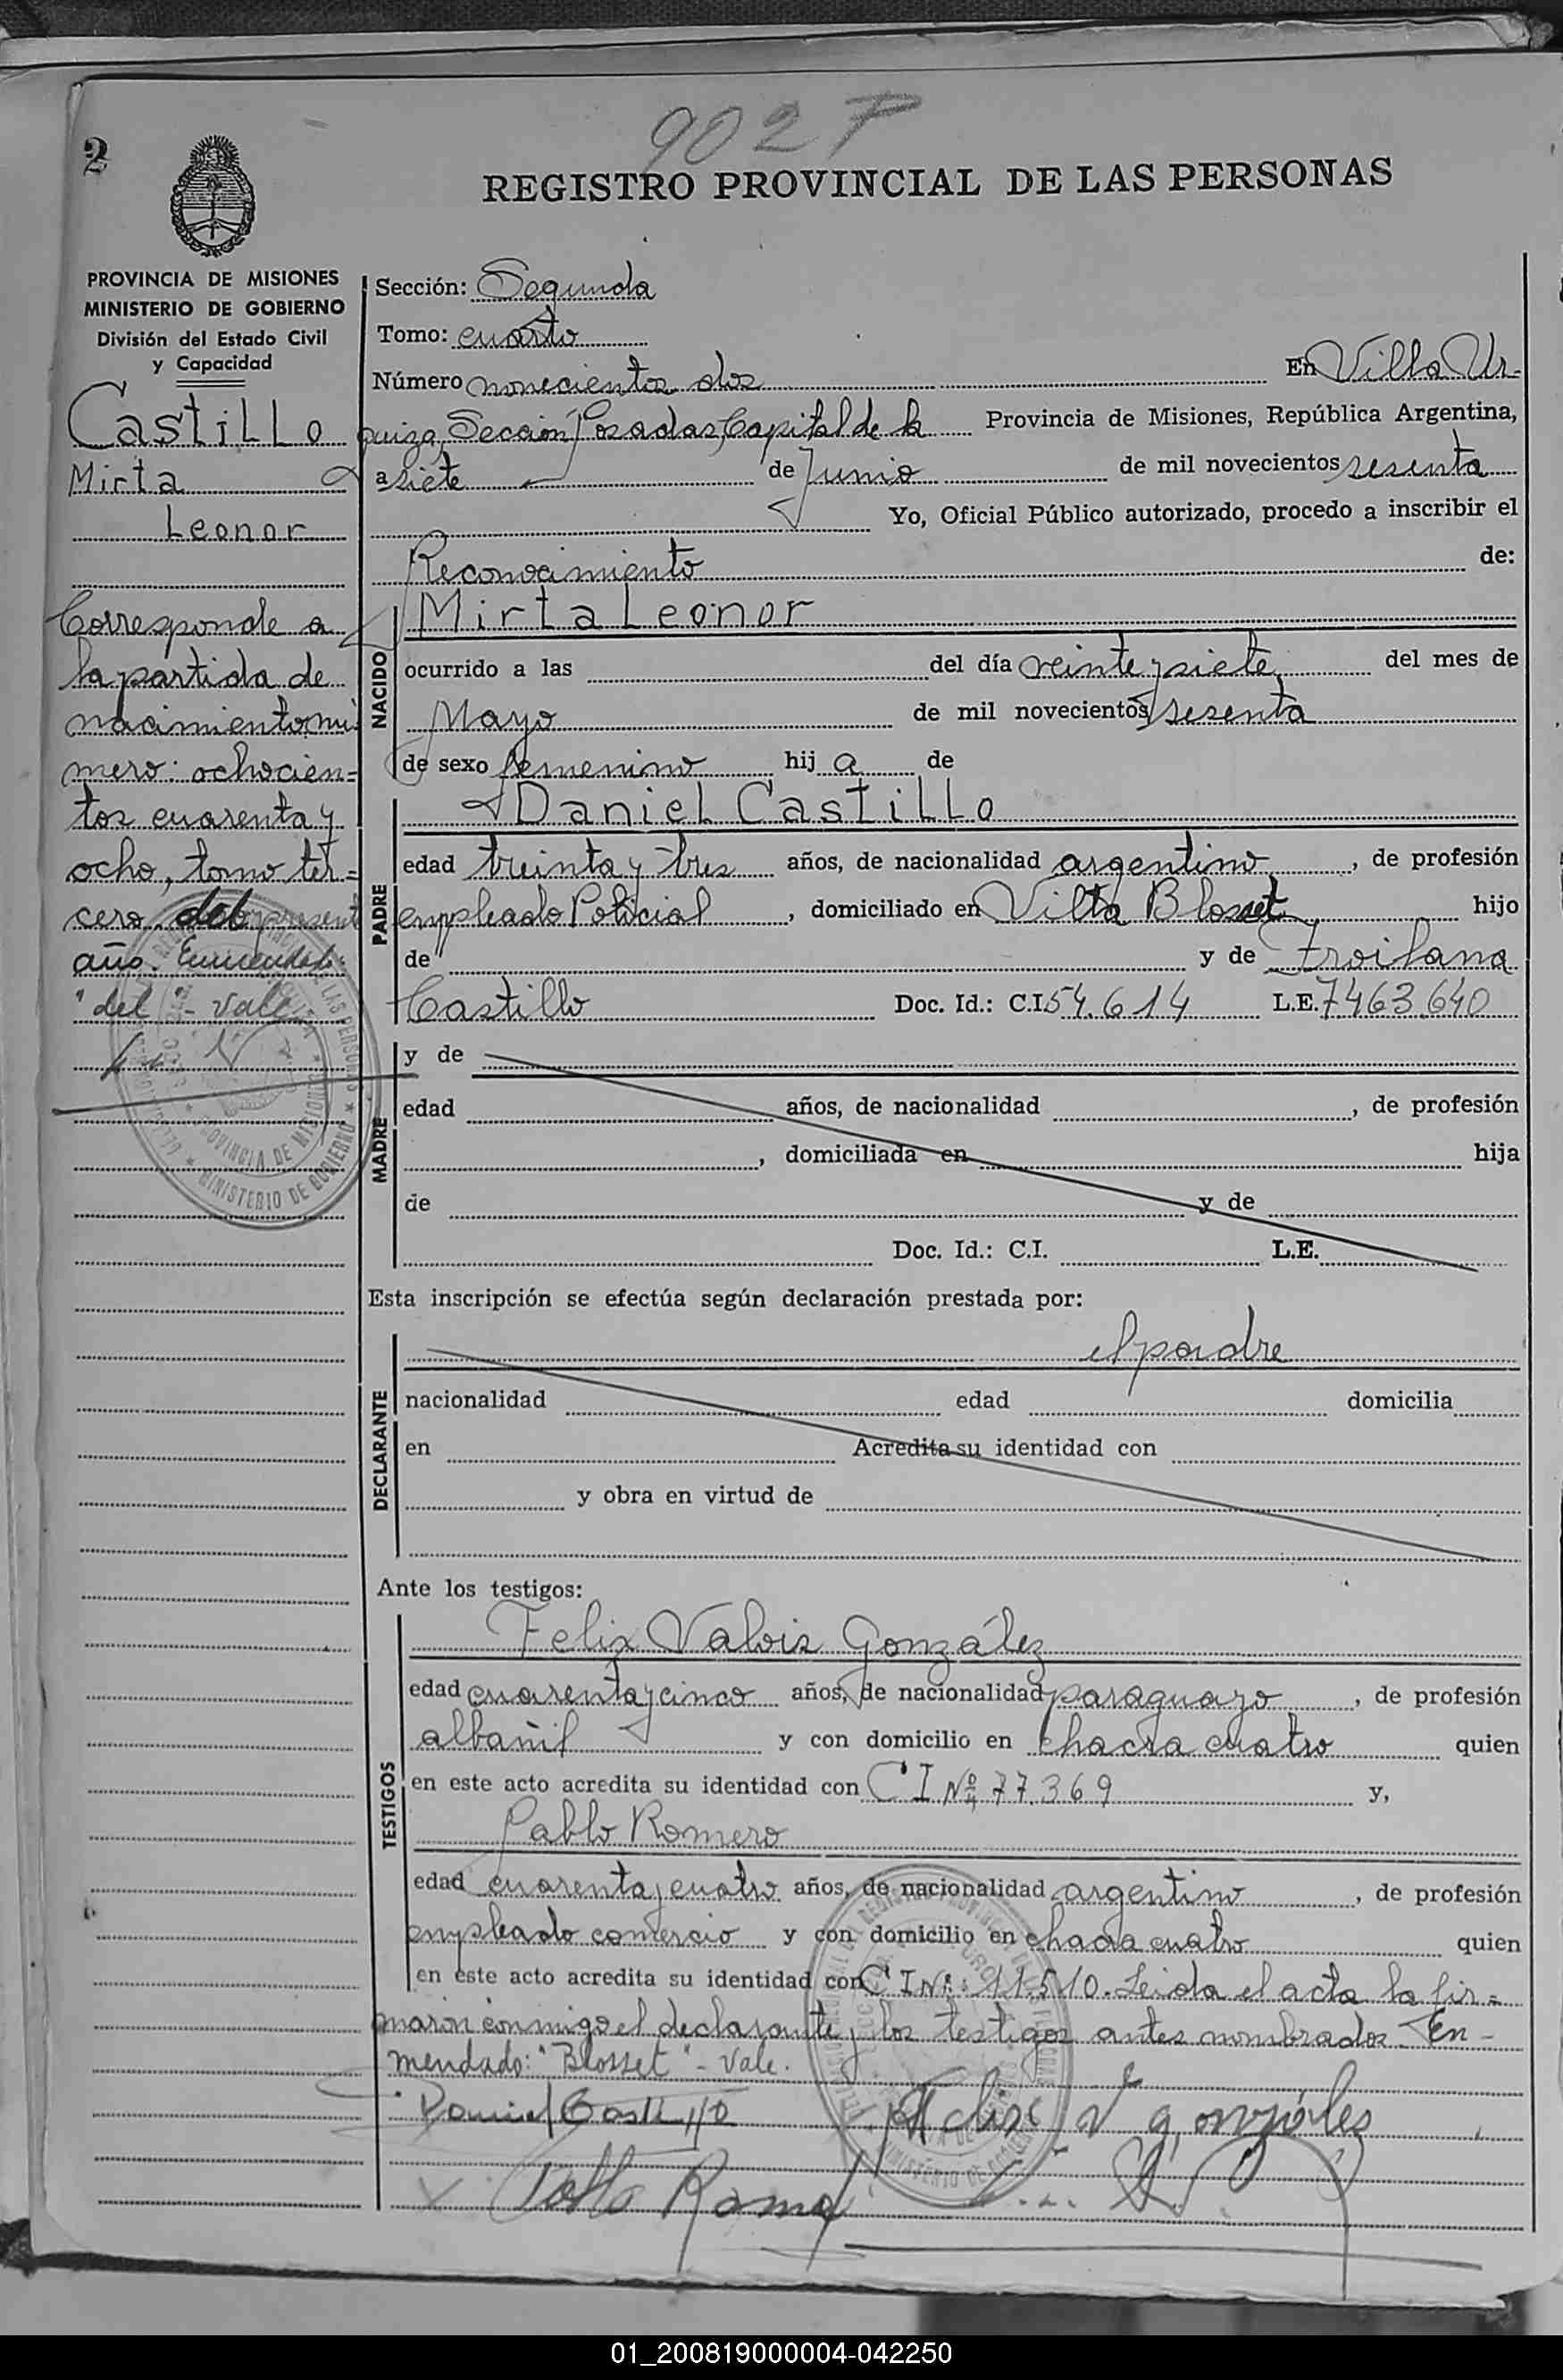 902 P
2
REGISTRO PROVINCIAL DE LAS PERSONAS
PROVINCIA DE MISIONES
MINISTERIO DE GOBIERNO
División del Estado Civil
y Capacidad
Castillo
Mirta
Leonor
Corresponde a
la partida de
nacimiento nú
mero: ochocien=
tos cuarenta y
ocho, tomo ter=
cero del present
año. Enmendado:
"del" - vale
Sección: Segunda
Tomo: cuarto
Número novecientos dos En Villa Ur-
quiza, Sección Posadas, Capital de la Provincia de Misiones, República Argentina,
a siete de Junio de mil novecientos sesenta
Yo, Oficial Público autorizado, procedo a inscribir el
Reconocimiento de:
NACIDO
Mirta Leonor
ocurrido a las del día veinte y siete del mes de
Mayo de mil novecientos sesenta
de sexo femenino hij a de
PADRE
Daniel Castillo
edad treinta y tres años, de nacionalidad argentino, de profesión
empleado Policial, domiciliado en Villa Blosset hijo
de y de Froilana
Castillo Doc. Id.: C.I. 54.614 L.E. 7463.640
MADRE
y de
edad años, de nacionalidad , de profesión
, domiciliada en hija
de y de
Doc. Id.: C.I. L.E.
Esta inscripción se efectúa según declaración prestada por:
DECLARANTE
el padre
nacionalidad edad domicilia
en Acredita su identidad con
y obra en virtud de
Ante los testigos:
TESTIGOS
Felix Valois González
edad cuarenta y cinco años, de nacionalidad paraguayo, de profesión
albañil y con domicilio en chacra cuatro quien
en este acto acredita su identidad con C I Nº 77.369 y,
Pablo Romero
edad cuarenta y cuatro años, de nacionalidad argentino, de profesión
empleado comercio y con domicilio en chacra cuatro quien
en este acto acredita su identidad con C I Nº: 11.510. Leida el acta la fir=
maron conmigo el declarante y los testigos antes nombrados. En-
mendado: "Blosset" - Vale.
Daniel Castillo Felix V gonzáles
Pablo Romero
01_200819000004-042250